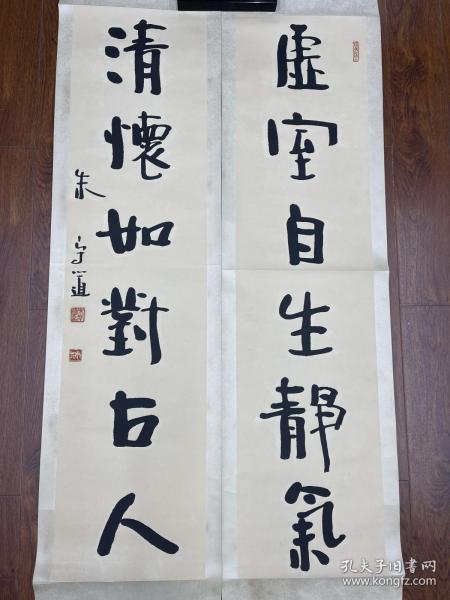 虛室自生靜氣
清懷如對古人
朱守道
孔夫子旧书网
www.kongfz.com